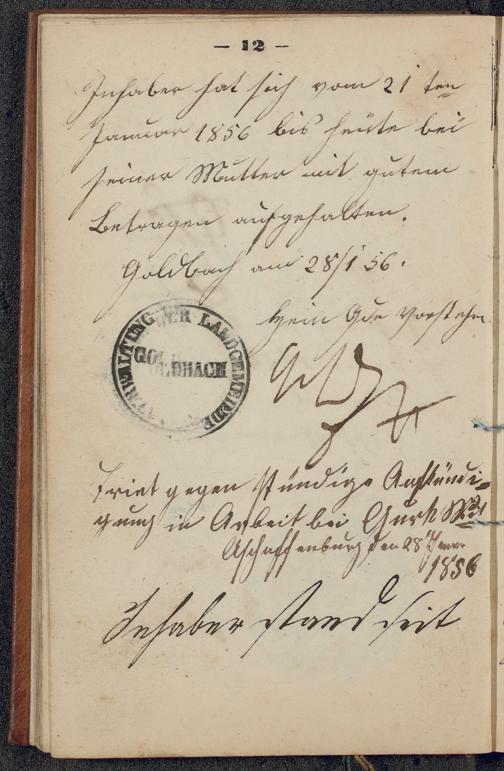 — 12 —
Inhaber hat sich vom 21 ten
Januar 1856 bis heute bei
seiner Mutter mit gutem
Betragen aufgehalten.
Goldbach am 28/1 56.
Gde Vorsteher
VERWALTUNG DER LANDGEMEINDE
GOLDBACH
Tritt gegen stündige Aufkündi-
gung in Arbeit bei
Aschaffenburg den 28 Janr
1856
Inhaber stand seit